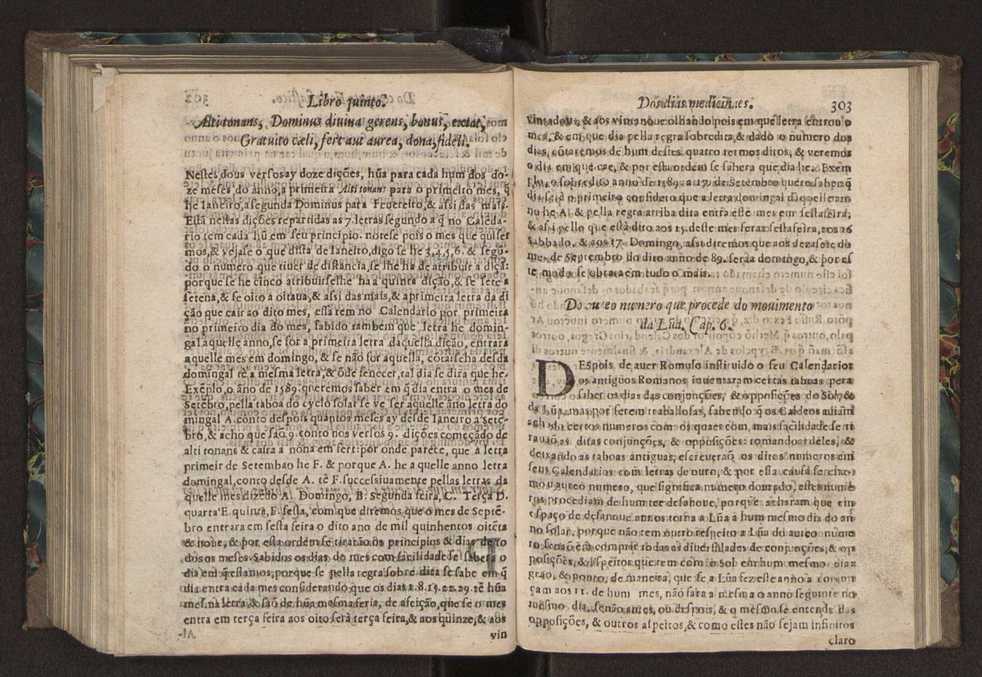 Libro quinto.
Altitonans, Dominus divina gerens, bonus, extat,
Gratuito cæli, fert aut aurea, dona, fideli.
Nestes dous versos ay doze dições, hũa para cada hum dos do-
ze meses do anno, a primeira Altitonans para o primeiro mes, q̃
he Ianeiro, a segunda Dominus para Feuereiro, & assi das mais.
Està nestas dições repartidas as 7. letras segundo a q̃ no Calēda-
rio tem cada hũ em seu principio. notese pois o mes que quiser
mos, & vejase o que dista de Ianeiro, digo se he 3.4.5.6. & segū-
do o numero que tiuer de distancia, se lhe ha de atribuir a diçã:
porque se he cinco atribuirselhe ha a quinta dição, & se sete a
setena, & se oito a oitaua, & assi das mais, & a primeira letra da di
ção que cair ao dito mes, essa tem no Calendario por primeira
no primeiro dia do mes, sabido tambem que letra he domin-
gal aquelle anno, se for a primeira letra daquella dição, entrara
aquelle mes em domingo, & se não for aquella, cōtarseha desda
domingal tè a mesma letra, & ōde fenecer, tal dia se dira que he.
Exēplo, o ano de 1589. queremos saber em q̃ dia entra o mes de
Setēbro, pella taboa do cyclo solar se ve ser aquelle ano letra do
mingal A. conto despois quantos meses ay desde Ianeiro a Sete-
bro, & acho que saõ. 9. conto nos versos 9. dições começado de
alti tonans & caira a nona em fert: por onde parece, que a letra
primeir de Setembao he F. & porque A. he aquelle anno letra
domingal, conto desde A. tē F. successiuamente pellas letras da
quelle mes dizēdo A. Domingo, B. Segunda feira, C. Terça D.
quarta E. quinta, F. sesta, com que diremos que o mes de Septē-
bro entrara em sesta feira o dito ano de mil quinhentos oitēta
& noue, & por esta ordem se tirarão os principios & dias de to
dos os meses. Sabidos os dias do mes com facilidade se sabera o
dia em q̃ estamos, porque se pella regra sobre dita se sabe em q̃
dia entra cada mes considerando que os dias 1.8.15.22.29. tē hũa
mesma letra, & saõ de hũa mesma feria, de afeição, que se o mes
entra em terça feira aos oito serà terça feira, & aos quinze, & aos
vin
Dos dias medicinaes. 303
vinta dous, & aos vinta noue olhando pois em que letra entrou o
mes, & em que dia pella regra sobredita, & dado o numero dos
dias, cōtaremos de hum destes quatro termos ditos, & veremos
o dia em que cae, & por esta ordem se sabera que dia he. Exem
plo, o sobredito anno de 1589. a 17. de Setembro quero saber q̃
dia seja o primeiro considero que a letra domingal daquelle an
no he A. & pella regra arriba dita entra este mes em sesta feira;
& assi pello que està dito aos 15. deste mes sera sesta feira, aos 16
Sabbado, & aos 17. Domingo, assi diremos que aos dezasete do
mes de Septembro do dito anno de 89. serâa domingo, & por es
te modo se obrara em tudo o mais.
Do aureo numero que procede do mouimento
da Lũa. Cap. 6.
DEspois de auer Romulo instituido o seu Calendarios
os antigos Romanos inuentaram certas taboas para
saber os dias das conjunções, & opposições do Sol, &
da Lũa, mas por serem trabalhosas, sabendo q̃ os Caldeos auiam
achado certos numeros com os quaes com mais facilidade se ti
rauão as ditas conjunções, & opposições: tomando os delles, &
deixando as taboas antiguas, escreueram os ditos numeros em
seus Calendarios com letras de ouro, & por esta causa se cha-
mou aureo numero, que significa numero dourado, estes nume
ros procediam de hum tee desanoue, porque acharam que em
espaço de desanoue annos torna a Lũa à hum mesmo dia do an
no solar, porque não tem outro respeito a Lũa do aureo nume
ro senam em comprir todas as diuersidades de conjunções, & op
posições, & aspeitos que tem com o Sol em hum mesmo dia,
grão, & ponto, de maneira, que se a Lũa fez este anno a conjun
çam aos 11. de hum mes, não fara a mesma o anno seguinte no
mesmo dia, senão antes, ou despois, & o mesmo se entende das
opposições, & outros aspeitos, & como estes não sejam infinitos
claro